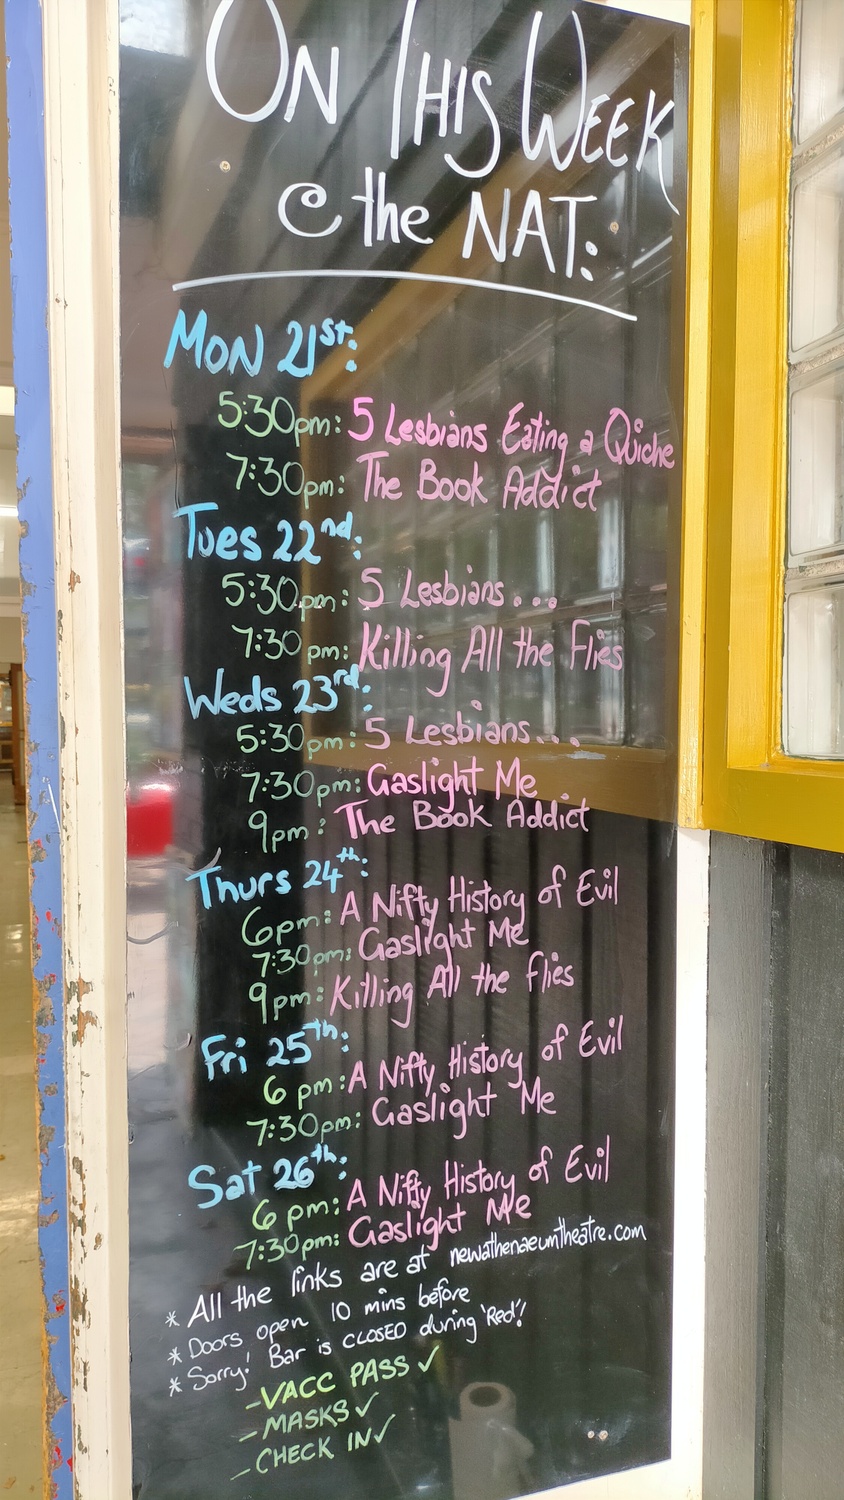 ON THIS WEEK
@ the NAT:
MON 21st:
5:30pm: 5 Lesbians Eating a Quiche
7:30pm: The Book Addict
Tues 22nd:
5:30pm: 5 Lesbians...
7:30pm: Killing All the Flies
Weds 23rd:
5:30pm: 5 Lesbians...
7:30pm: Gaslight Me
9pm: The Book Addict
Thurs 24th:
6pm: A Nifty History of Evil
7:30pm: Gaslight Me
9pm: Killing All the flies
Fri 25th:
6 pm: A Nifty History of Evil
7:30pm: Gaslight Me
Sat 26th:
6 pm: A Nifty History of Evil
7:30pm: Gaslight Me
* All the links are at newathenaeumtheatre.com
* Doors open 10 mins before
* Sorry! Bar is CLOSED during 'Red'!
- VACC PASS ✓
- MASKS ✓
- CHECK IN ✓